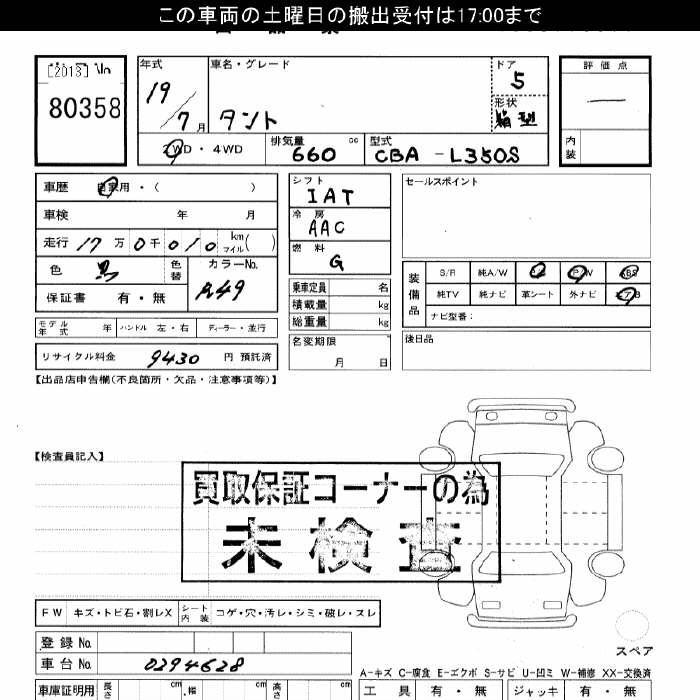 この車両の土曜日の搬出受付は17:00まで
[2013] No
80358
年式
19/7月
車名・グレード
タント
ドア
5
形状
箱型
評価点
―
内装
2WD・4WD
排気量
660 cc
型式
CBA-L350S
車歴 自家用・( )
車検 年 月
走行 17万0千010 km マイル( )
色 黒
色替
カラーNo.
A49
保証書 有・無
モデル年式 年
ハンドル 左・右
ディーラー・並行
リサイクル料金 9430 円 預託済
シフト
IAT
冷房
AAC
燃料
G
乗車定員 名
積載量 kg
総重量 kg
名変期限
月 日
セールスポイント
装備品
S/R 純A/W P/S P/W ABS
純TV 純ナビ 革シート 外ナビ エアB
ナビ型番:
後日品
【出品店申告欄(不良箇所・欠品・注意事項等)】
【検査員記入】
買取保証コーナーの為
未検査
FW キズ・トビ石・割レX
シート内装 コゲ・穴・汚レ・シミ・破レ・スレ
スペア
登録No.
車台No. 0294628
A-キズ C-腐食 E-エクボ S-サビ U-凹ミ W-補修 XX-交換済
車庫証明用 長さ cm 幅 cm 高さ cm
工具 有・無 ジャッキ 有・無